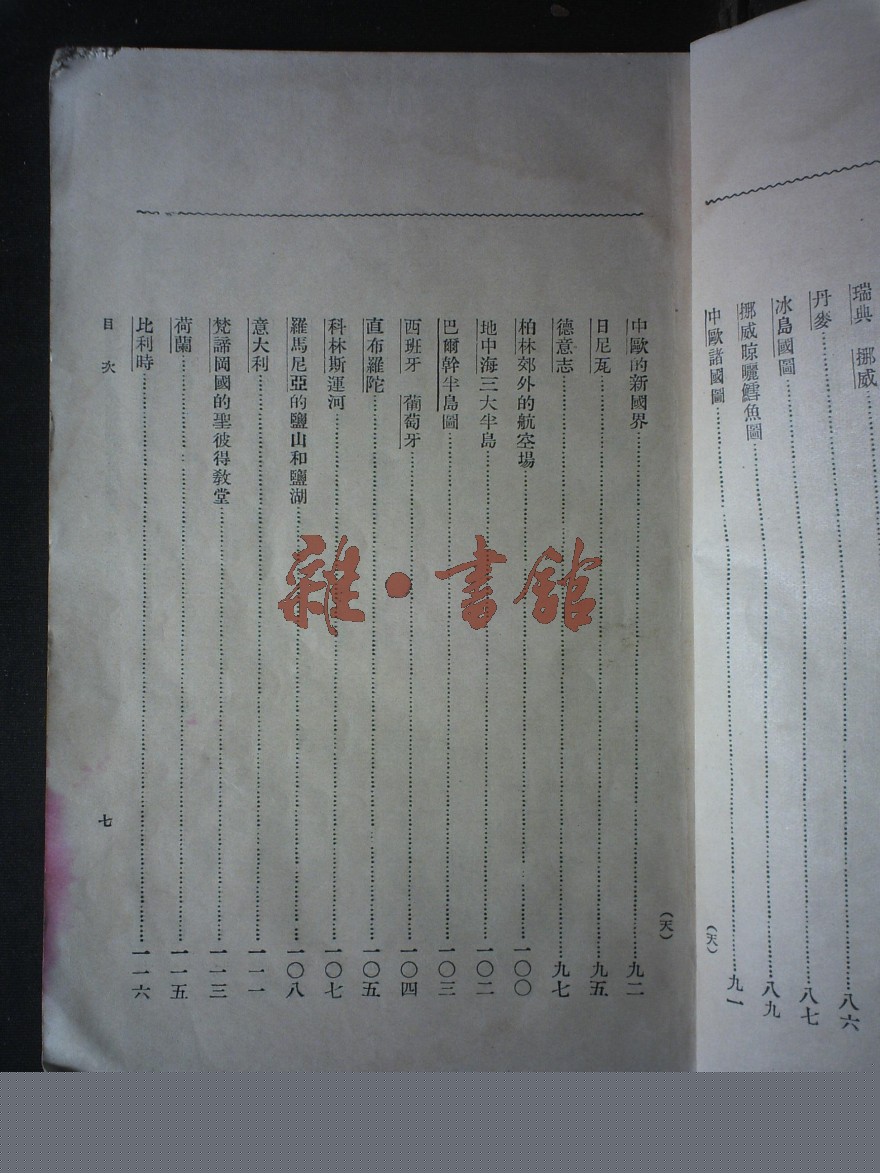 瑞典　挪威……八六
丹麥……八七
冰島國圖……八九
挪威晾曬鱈魚圖
中歐諸國圖……九一
（天）
（天）
中歐的新國界……九二
日尼瓦……九五
德意志……九七
柏林郊外的航空場……一〇〇
地中海三大半島……一〇二
巴爾幹半島圖……一〇三
西班牙　葡萄牙……一〇四
直布羅陀……一〇五
科林斯運河……一〇七
羅馬尼亞的鹽山和鹽湖……一〇八
意大利……一一一
梵諦岡國的聖彼得教堂……一一三
荷蘭……一一五
比利時……一一六
目次
七
雜·書館